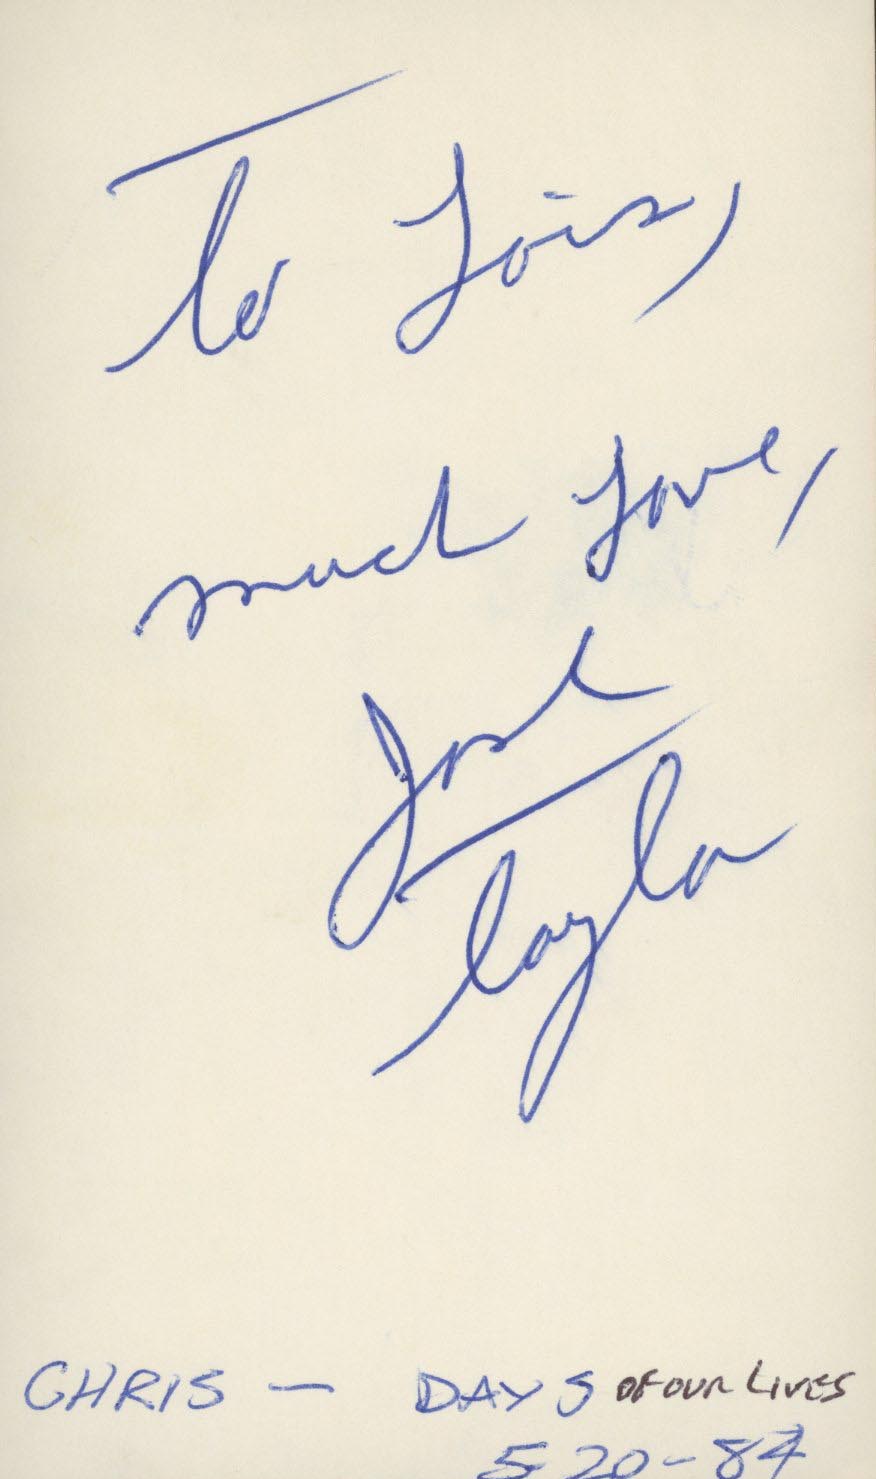 To Lois,
much Love,
Josh
Taylor
CHRIS — DAYS OF OUR LIVES
5 20-84